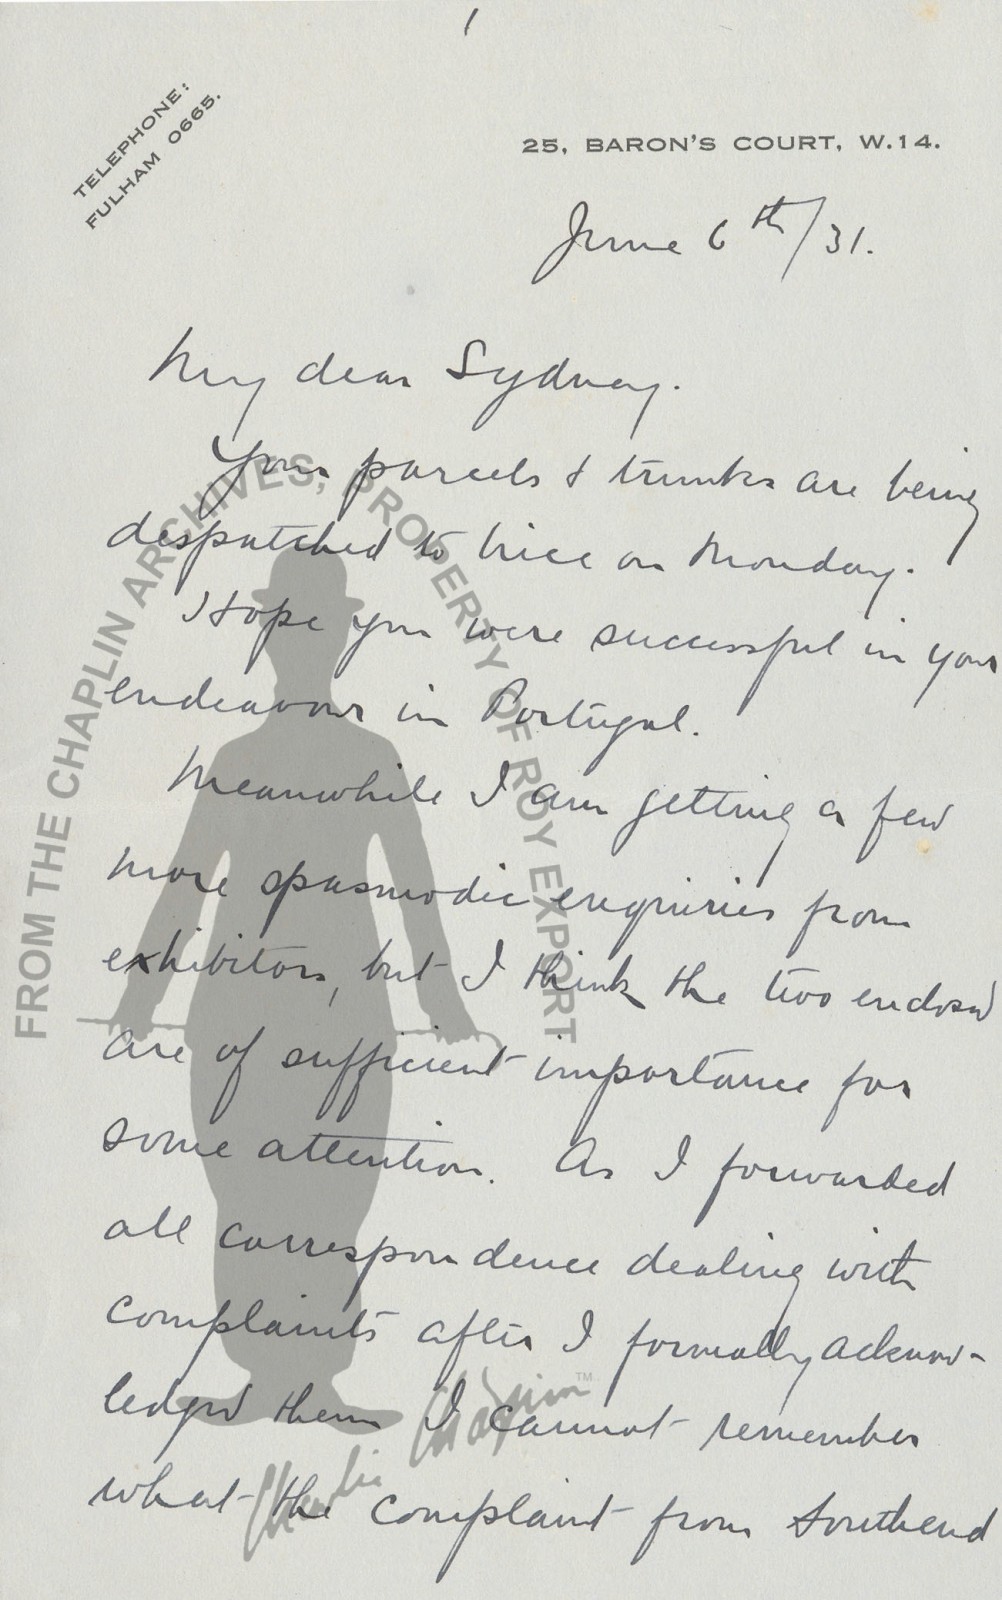 1
TELEPHONE:
FULHAM 0665.
25, BARON'S COURT, W.14.
June 6th/31.
My dear Sydney.
Your parcels & trunks are being
despatched to Nice on Monday.
Hope you were successful in your
endeavour in Portugal.
Meanwhile I am getting a few
more spasmodic enquiries from
exhibitors, but I think the two enclosed
are of sufficient importance for
some attention. As I forwarded
all correspondence dealing with
complaints after I formally acknow-
ledged them I cannot remember
what the complaint from Southend
FROM THE CHAPLIN ARCHIVES, PROPERTY OF ROY EXPORT
Charlie Chaplin TM